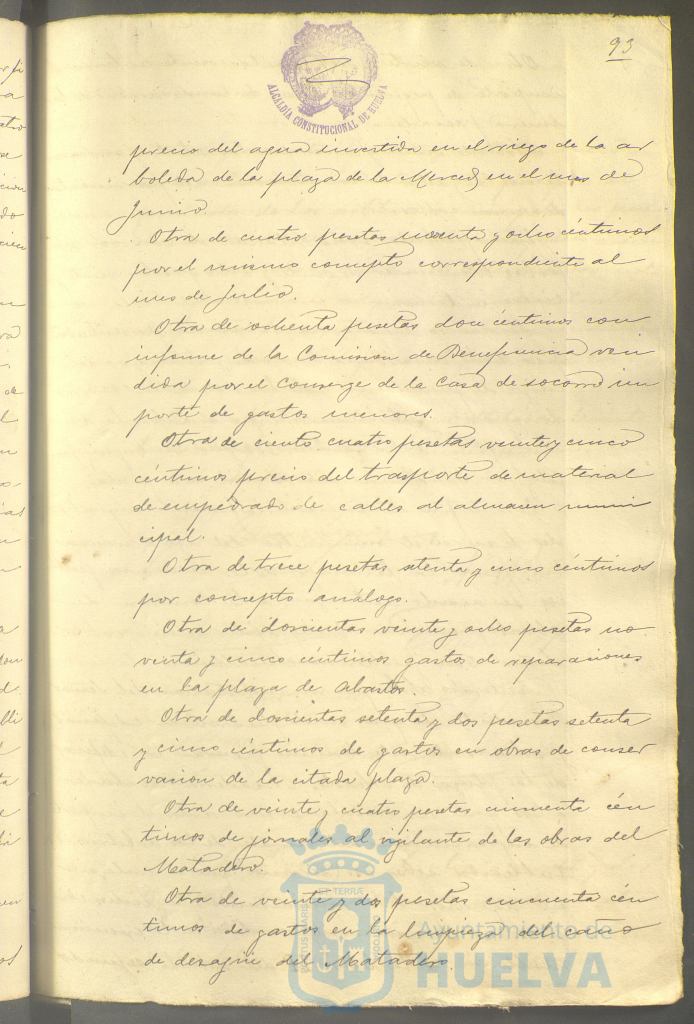 93
ALCALDÍA CONSTITUCIONAL DE HUELVA
precio del agua invertida en el riego de la ar
boleda de la plaza de la Merced, en el mes de
Junio.
Otra de cuatro pesetas noventa y ocho céntimos
por el mismo concepto correspondiente al
mes de Julio.
Otra de ochenta pesetas doce céntimos con
informe de la Comision de Beneficencia ren
dida por el Conserge de la Casa de socorro im
porte de gastos menores.
Otra de ciento cuatro pesetas veinte y cinco
céntimos precio del trasporte de material
de empedrado de calles al almacen muni
cipal.
Otra de trece pesetas setenta y cinco céntimos
por concepto análogo.
Otra de doscientas veinte y ocho pesetas no
venta y cinco céntimos gastos de reparaciones
en la plaza de Abastos.
Otra de doscientas setenta y dos pesetas setenta
y cinco céntimos de gastos en obras de conser
vacion de la citada plaza.
Otra de veinte y cuatro pesetas cincuenta cén
timos de jornales al vigilante de las obras del
Matadero.
Otra de veinte y dos pesetas cincuenta cén
timos de gastos en la limpieza del caño
de desagüe del Matadero.
Ayuntamiento de
HUELVA